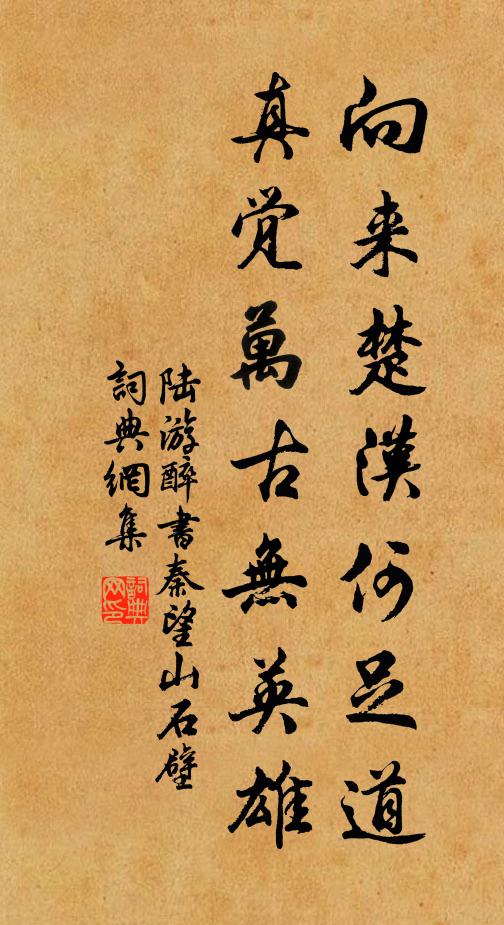 向来楚漢何足道
真覚萬古無英雄
陆游醉書秦望山石壁
詞典網集
詞典
网印